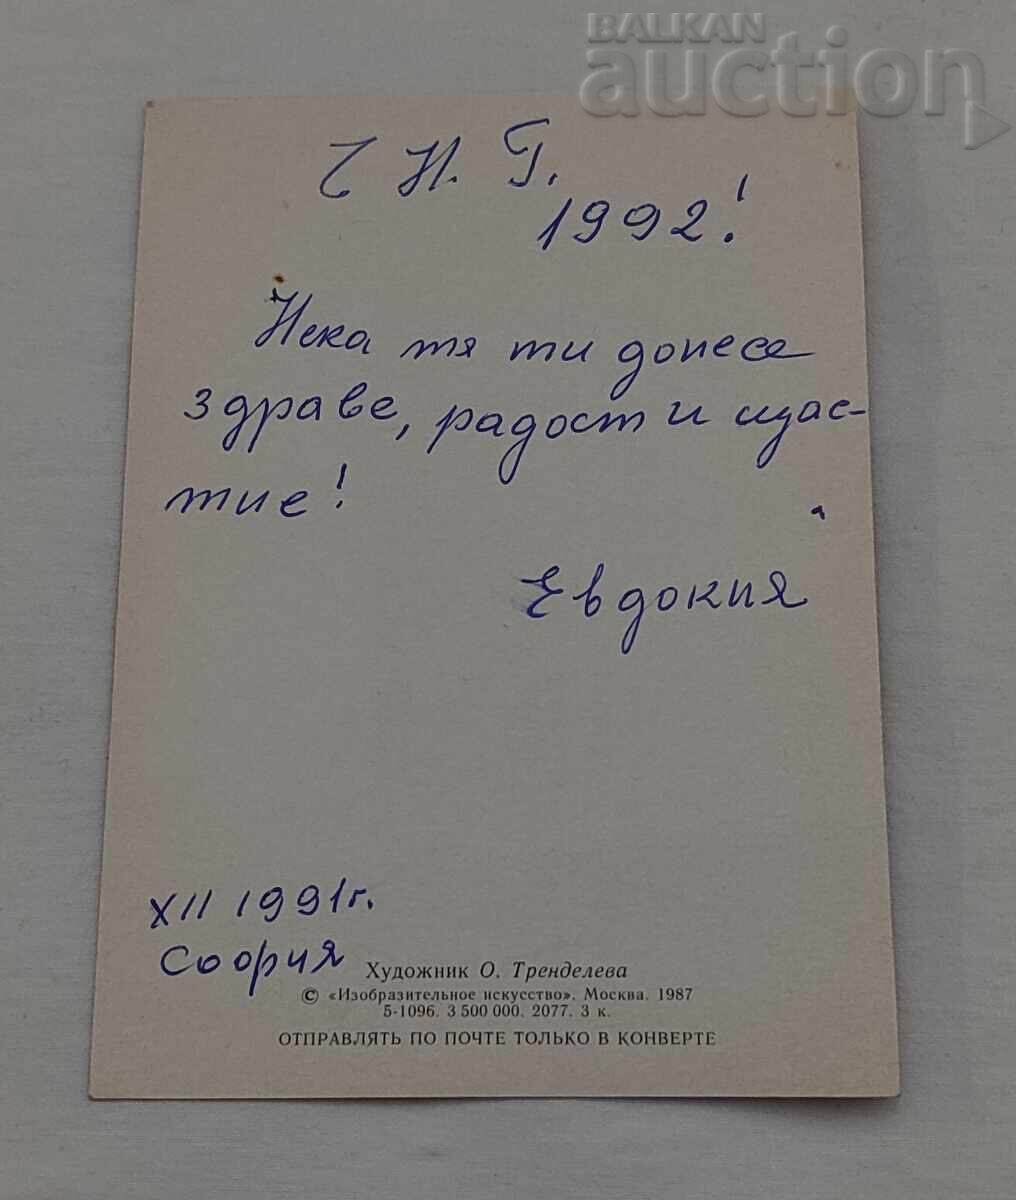 BALKAN
auction
Ч Н. Г.
1992!
Нека тя ти донесе
здраве, радост и щас-
тие!
Евдокия
XII 1991г.
София
Художник О. Тренделева
© «Изобразительное искусство». Москва. 1987
5-1096. 3 500 000. 2077. 3 к.
ОТПРАВЛЯТЬ ПО ПОЧТЕ ТОЛЬКО В КОНВЕРТЕ